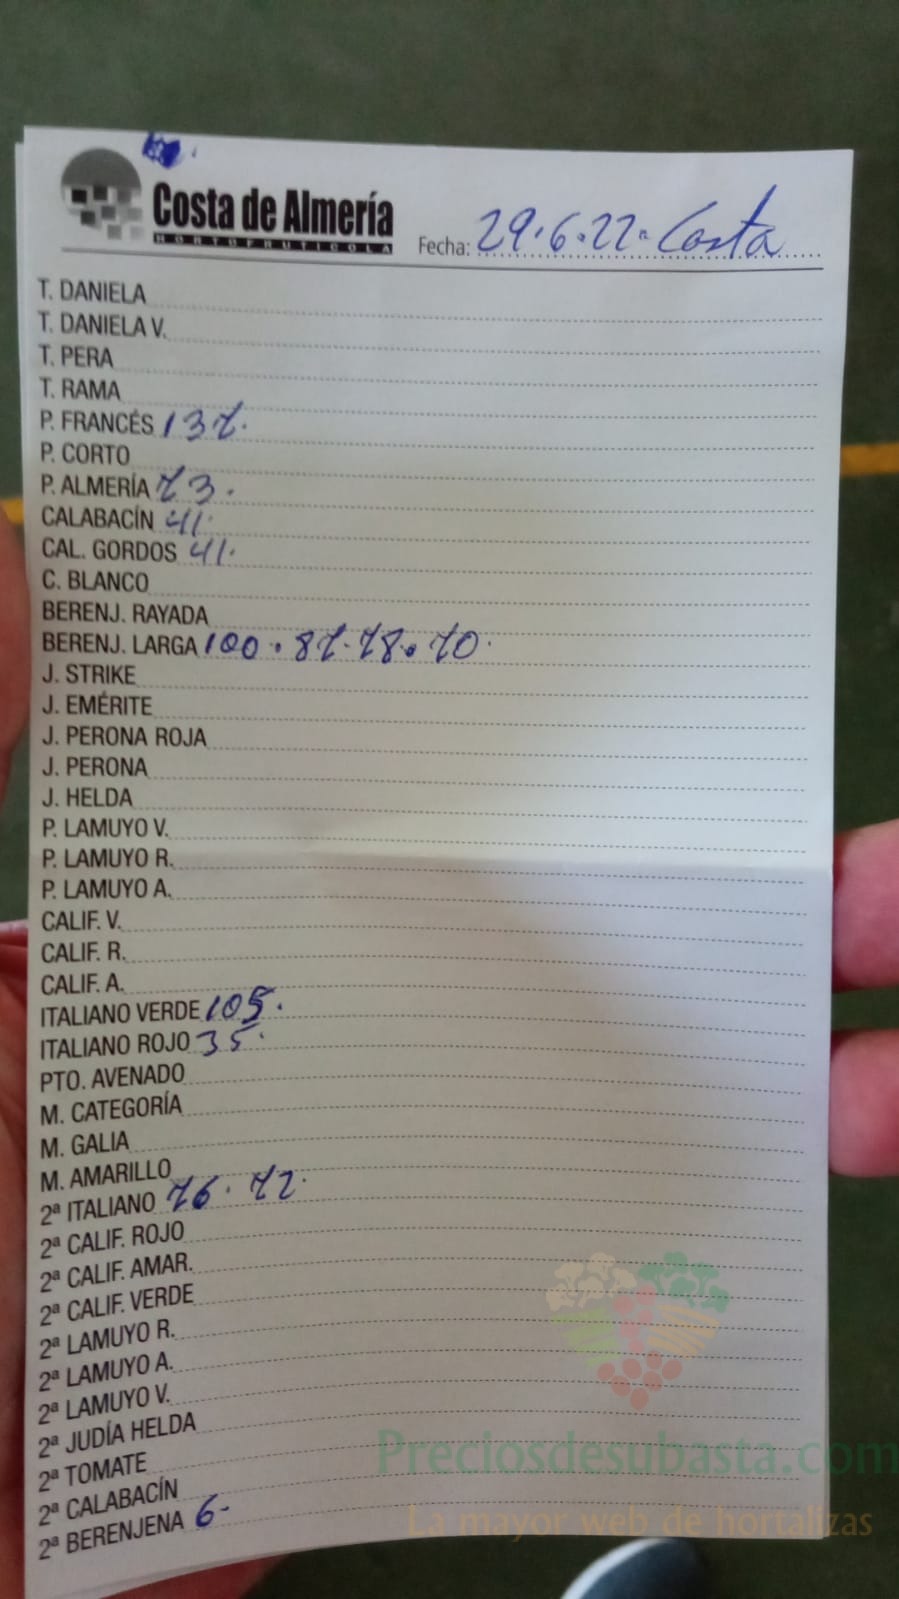 Costa de Almería
HORTOFRUTICOLA
Fecha: 29.6.22. Costa
T. DANIELA
T. DANIELA V.
T. PERA
T. RAMA
P. FRANCÉS 137.
P. CORTO
P. ALMERÍA 73.
CALABACÍN 41.
CAL. GORDOS 41.
C. BLANCO
BERENJ. RAYADA
BERENJ. LARGA 100. 87. 78. 70.
J. STRIKE
J. EMÉRITE
J. PERONA ROJA
J. PERONA
J. HELDA
P. LAMUYO V.
P. LAMUYO R.
P. LAMUYO A.
CALIF. V.
CALIF. R.
CALIF. A.
ITALIANO VERDE 105.
ITALIANO ROJO 35.
PTO. AVENADO
M. CATEGORÍA
M. GALIA
M. AMARILLO
2ª ITALIANO 76. 72.
2ª CALIF. ROJO
2ª CALIF. AMAR.
2ª CALIF. VERDE
2ª LAMUYO R.
2ª LAMUYO A.
2ª LAMUYO V.
2ª JUDÍA HELDA
2ª TOMATE
2ª CALABACÍN
2ª BERENJENA 6-
Preciosdesubasta.com
La mayor web de hortalizas